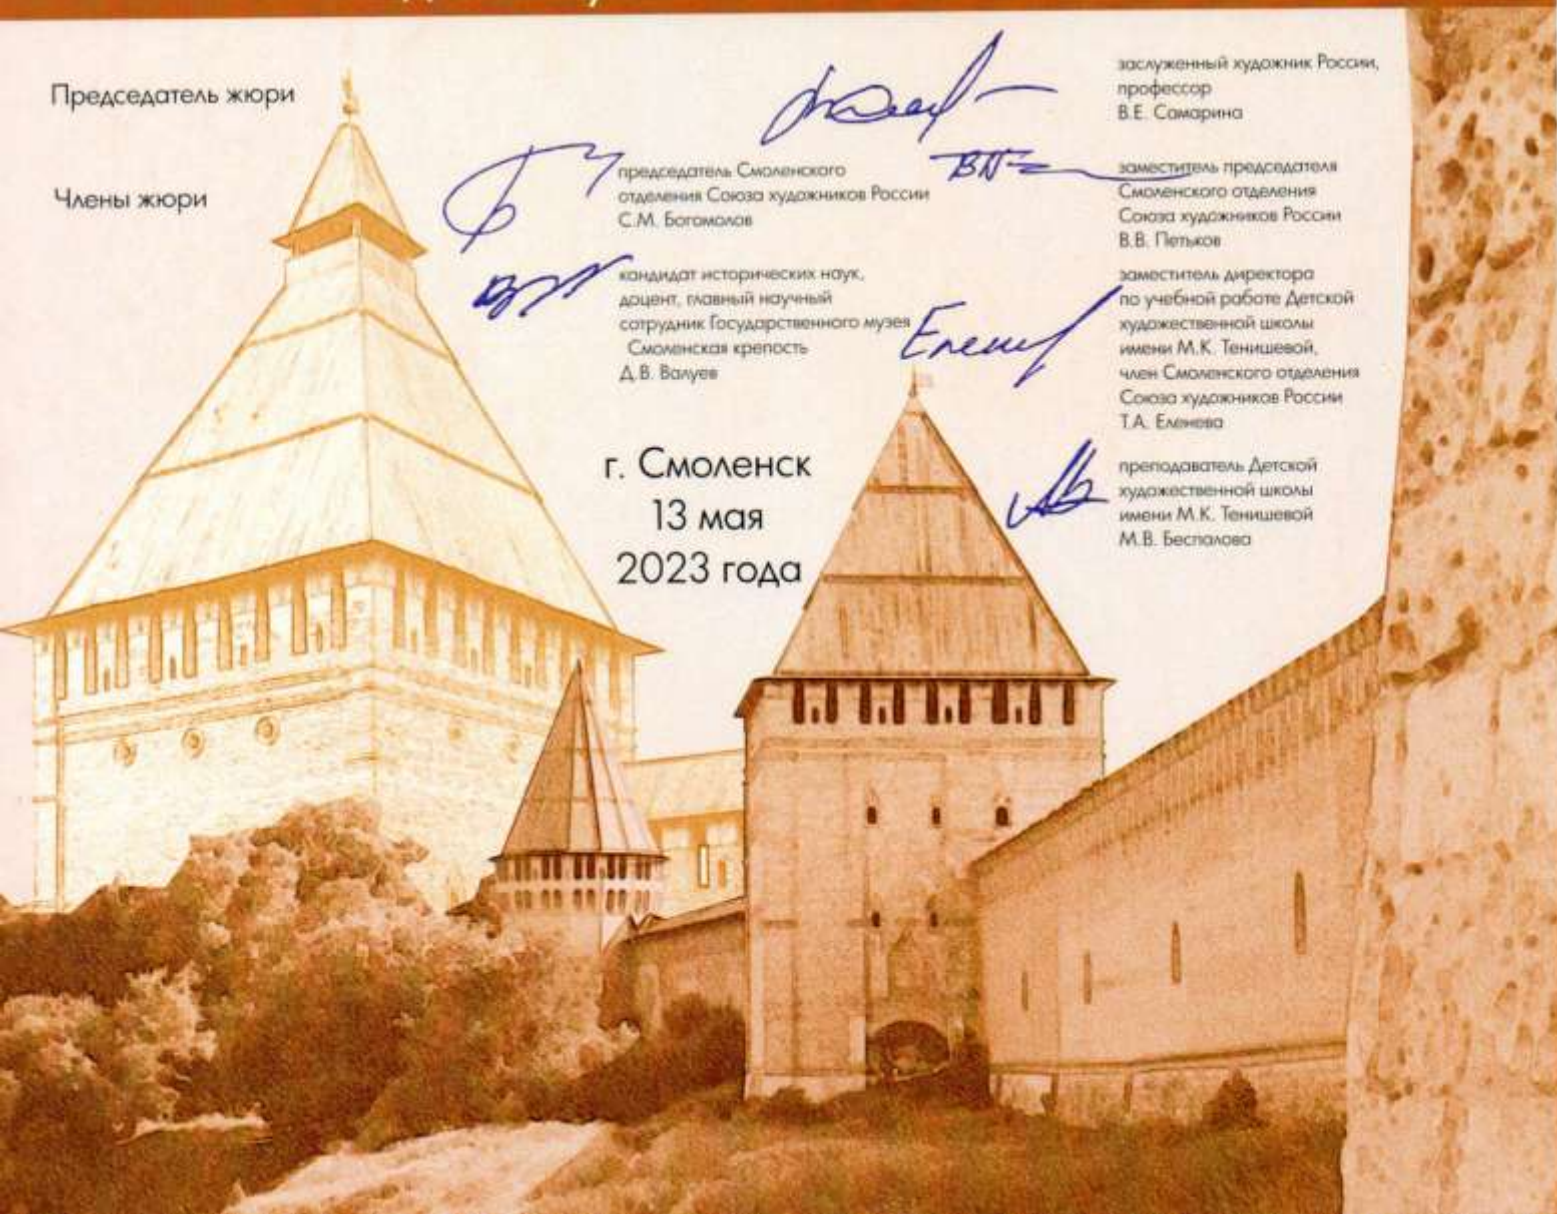 Председатель жюри
заслуженный художник России,
профессор
В.Е. Самарина
Члены жюри
председатель Смоленского
отделения Союза художников России
С.М. Богомолов
заместитель председателя
Смоленского отделения
Союза художников России
В.В. Петьков
кандидат исторических наук,
доцент, главный научный
сотрудник Государственного музея
Смоленская крепость
Д.В. Валуев
заместитель директора
по учебной работе Детской
художественной школы
имени М.К. Тенишевой,
член Смоленского отделения
Союза художников России
Т.А. Еленева
преподаватель Детской
художественной школы
имени М.К. Тенишевой
М.В. Беспалова
г. Смоленск
13 мая
2023 года